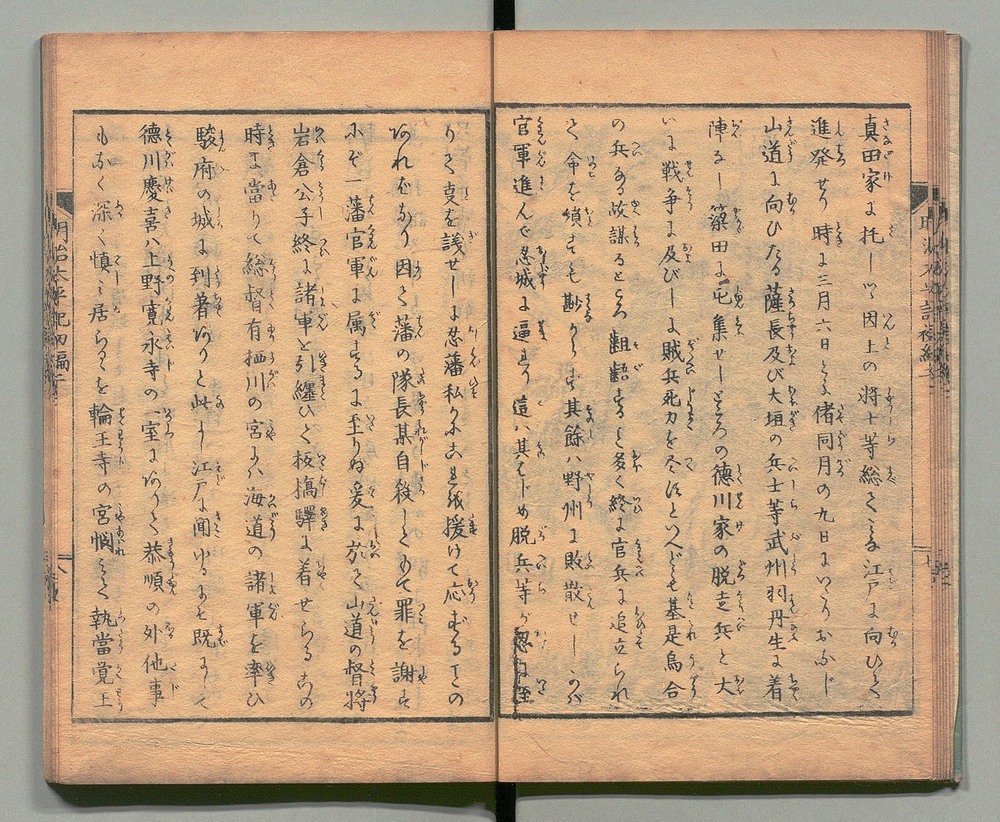 真田家に托しつゝ因上の将士等総て江戸に向ひて
進発せり時に三月六日とぞ偖同月の九日にいたりおなじ
山道に向ひたる薩長及び大垣の兵士等武州羽丹生に着
陣なし簗田に屯集せしところの徳川家の脱走兵と大
いに戦争に及びしに賊兵死力を尽すといへども基是烏合
の兵ある故謀るところ齟齬すること多く終に官兵に追立られ
て命を殞すもの尠からず其餘ハ野州に敗散せしかバ
官軍進んで忍城に逼れり這ハ其はじめ脱兵等が
りて事を議せしに忍藩私かにこれを援けて応ずるの
あれバなり因て藩の隊長某自殺しもて罪を謝す
にぞ一藩官軍に属するに至りぬ爰に於て山道の督将
岩倉公子終に諸軍を引纏ひて板橋驛に着せらるこの
時に當りて総督有栖川の宮にハ海道の諸軍を率ひ
駿府の城に到着ありと此よし江戸に聞ゆるにぞ既にして
徳川慶喜ハ上野寛永寺の一室にありて恭順の外他事
もなく深く慎み居らるゝを輪王寺の宮憫みて執當覚王
明治太平記初編二
八